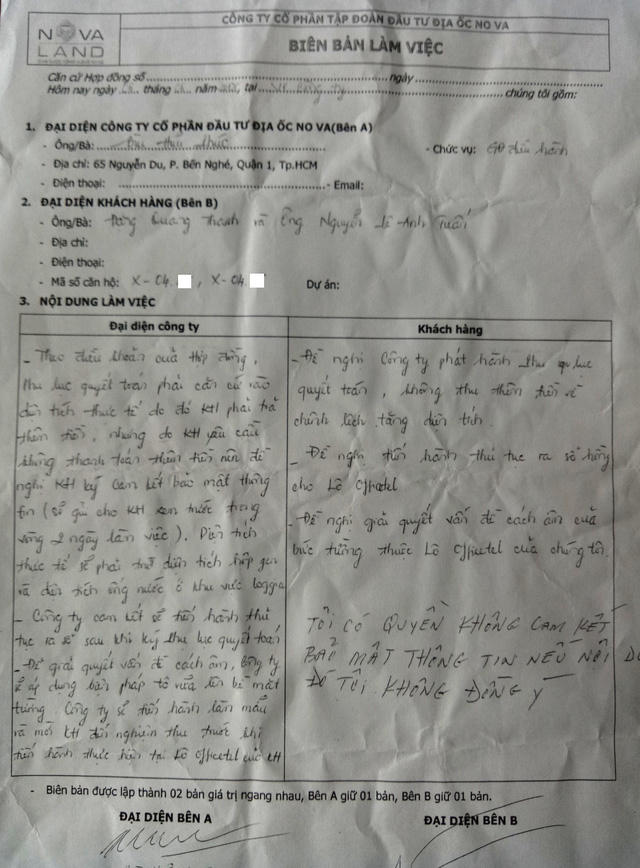 NOVA
LAND
CÔNG TY CỔ PHẦN TẬP ĐOÀN ĐẦU TƯ ĐỊA ỐC NO VA
BIÊN BẢN LÀM VIỆC
Căn cứ Hợp đồng số ngày
Hôm nay ngày tháng năm tại chúng tôi gồm:
1. ĐẠI DIỆN CÔNG TY CỔ PHẦN ĐẦU TƯ ĐỊA ỐC NO VA(Bên A)
- Ông/Bà: - Chức vụ: GĐ điều hành
- Địa chỉ: 65 Nguyễn Du, P. Bến Nghé, Quận 1, Tp.HCM
- Điện thoại: - Email:
2. ĐẠI DIỆN KHÁCH HÀNG (Bên B)
- Ông/Bà: Quang Thanh và Ông Nguyễn Lê Anh Tuấn
- Địa chỉ:
- Điện thoại:
- Mã số căn hộ: X-04. , X-04. Dự án:
3. NỘI DUNG LÀM VIỆC
Đại diện công ty
- Theo điều khoản của hợp đồng,
Phụ lục quyết toán phải căn cứ vào
diện tích thực tế do đó KH phải trả
thêm tiền, nhưng do KH yêu cầu
không thanh toán thêm tiền nên đề
nghị KH ký cam kết bảo mật thông
tin (sẽ gửi cho KH xem trước trong
vòng 2 ngày làm việc). Diện tích
thực tế sẽ phải trừ diện tích hộp gen
và diện tích ống nước ở khu vực loggia
- Công ty cam kết sẽ tiến hành thủ
tục ra sổ sau khi ký phụ lục quyết toán
- Để giải quyết vấn đề cách âm, Công ty
sẽ áp dụng biện pháp tô vữa lên bề mặt
tường. Công ty sẽ tiến hành làm mẫu
và mời KH đến nghiệm thu trước khi
tiến hành thực hiện tại Lô Officetel của KH
Khách hàng
- Đề nghị Công ty phát hành phụ lục
quyết toán, không thu thêm tiền về
chênh lệch tăng diện tích.
- Đề nghị tiến hành thủ tục ra sổ hồng
cho Lô Officetel
- Đề nghị giải quyết vấn đề cách âm của
bức tường thuộc Lô Officetel của chúng tôi.
TÔI CÓ QUYỀN KHÔNG CAM KẾT
BẢO MẬT THÔNG TIN NẾU NỘI DU
ĐÓ TÔI KHÔNG ĐỒNG Ý
- Biên bản được lập thành 02 bản giá trị ngang nhau, Bên A giữ 01 bản, Bên B giữ 01 bản.
ĐẠI DIỆN BÊN A
ĐẠI DIỆN BÊN B